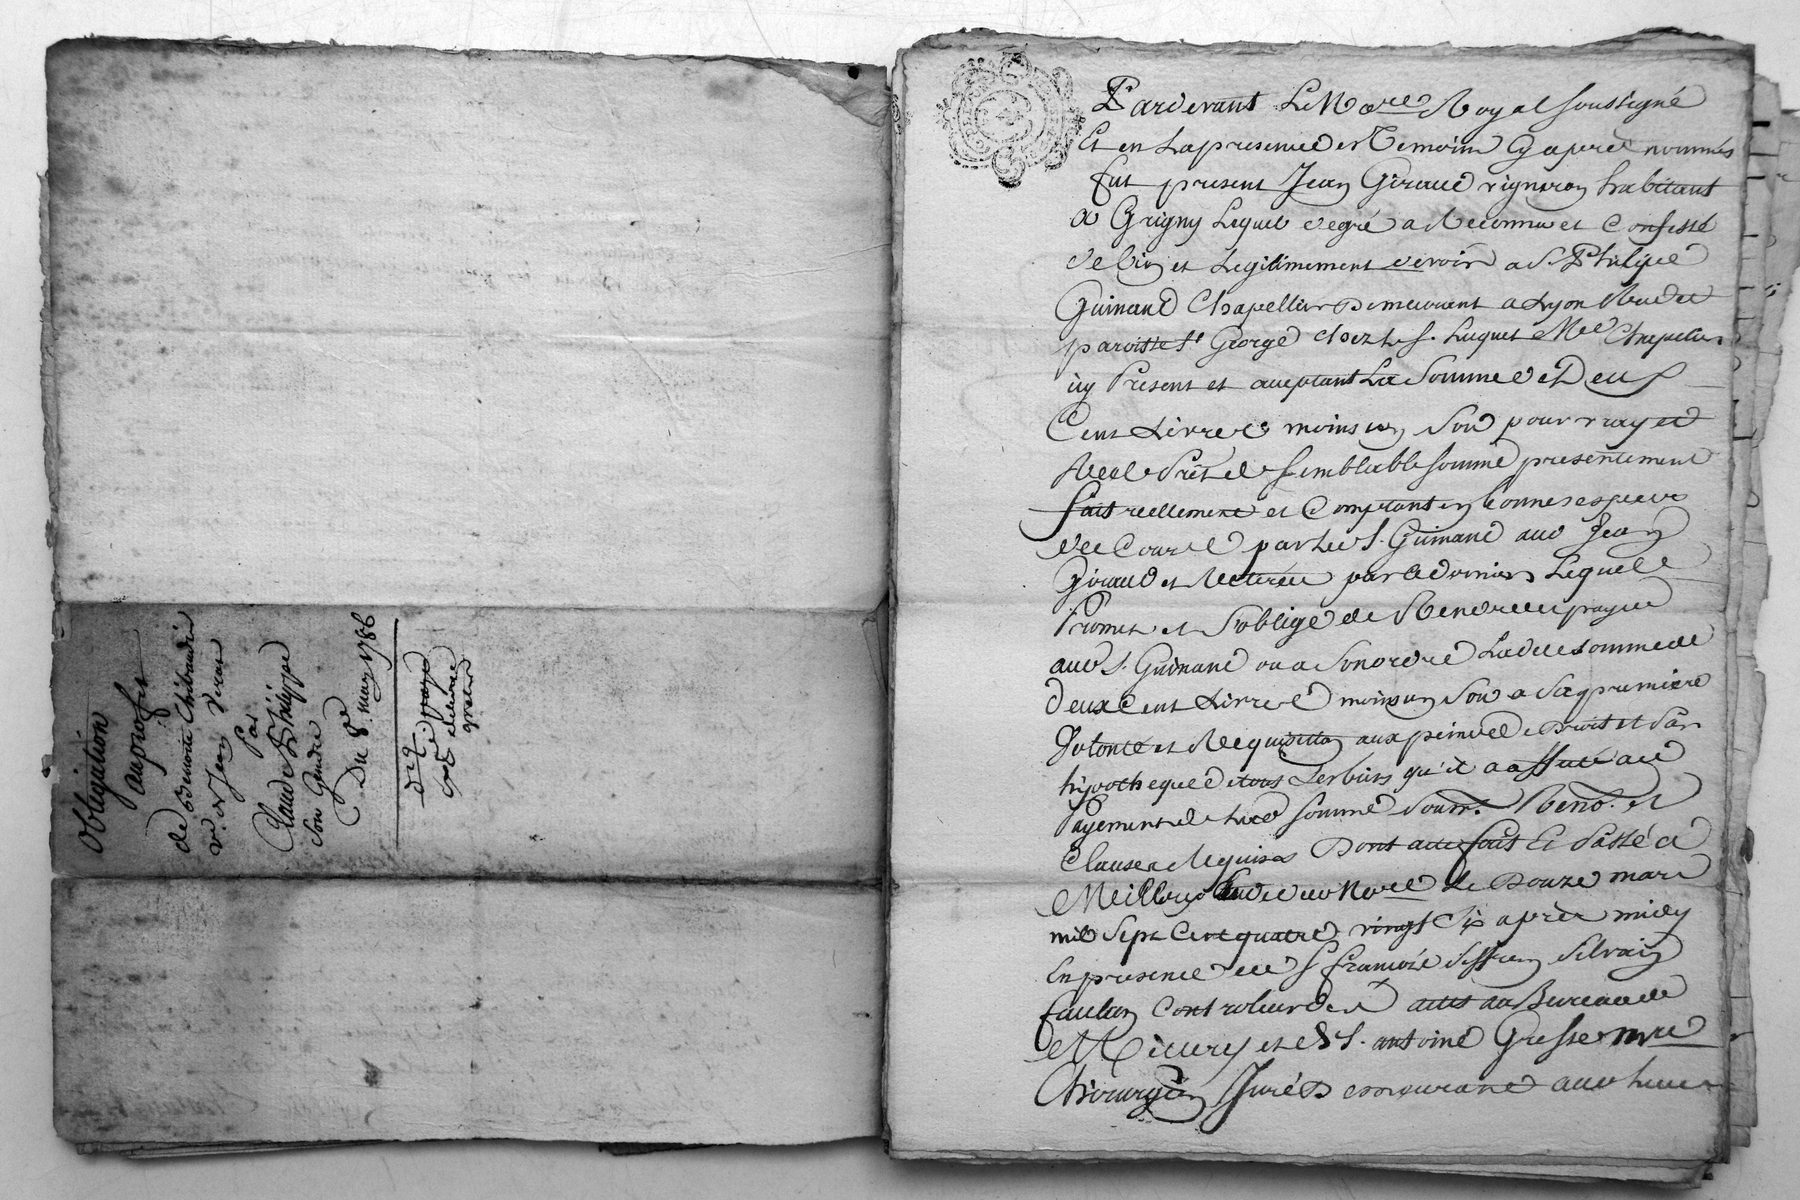 Obligation
au profit
de Benoite Thibaudier
ve. de Jean Veran
Par
Claude Philippe
Son Gendre
Du 8e. may 1786
Pardevant Le No.re Royal soussigné
Et en La presence des Temoins Cy apres nommés
fut present Jean Giraud vigneron habitant
a Grigny Lequel de gré a Reconnu et Confessé
de bien et Legitimement devoir a S. Philipe
Guinand Chapellier Demeurant a Lyon Rue et
paroisse St George chez Le S. Luquet Me Chapelier
icy Present et acceptant La Somme de Deux
Cent Livres moins un Sou pour vray et
Reel Pret de semblable somme presentement
fait reellement et Comptant en bonnes especes
de Cours par Led S. Guinand aud Jean
Giraud et Retirée par ce dernier Lequel
Promet et S'oblige de Rendre et payer
aud S. Guinand ou a son ordre Ladite somme de
deux Cent Livres moins un Sou a Sa premiere
Volonté et Requisition aux peines de Droit et Par
hypotheque de tous Les biens qu'il a affecté au
Payement de Lad somme Soum. Renon. et
Clauses Requises Dont acte fait Et Passé a
Millery Etude dud No.re Le Douze mars
mil Sept Cent quatre vingt Six après midy
En presence de S françois
Controleur des actes au Bureau de
Millery et de S. antoine Gresse mtre
Chirurgien Juré Demeurant aud Lieu